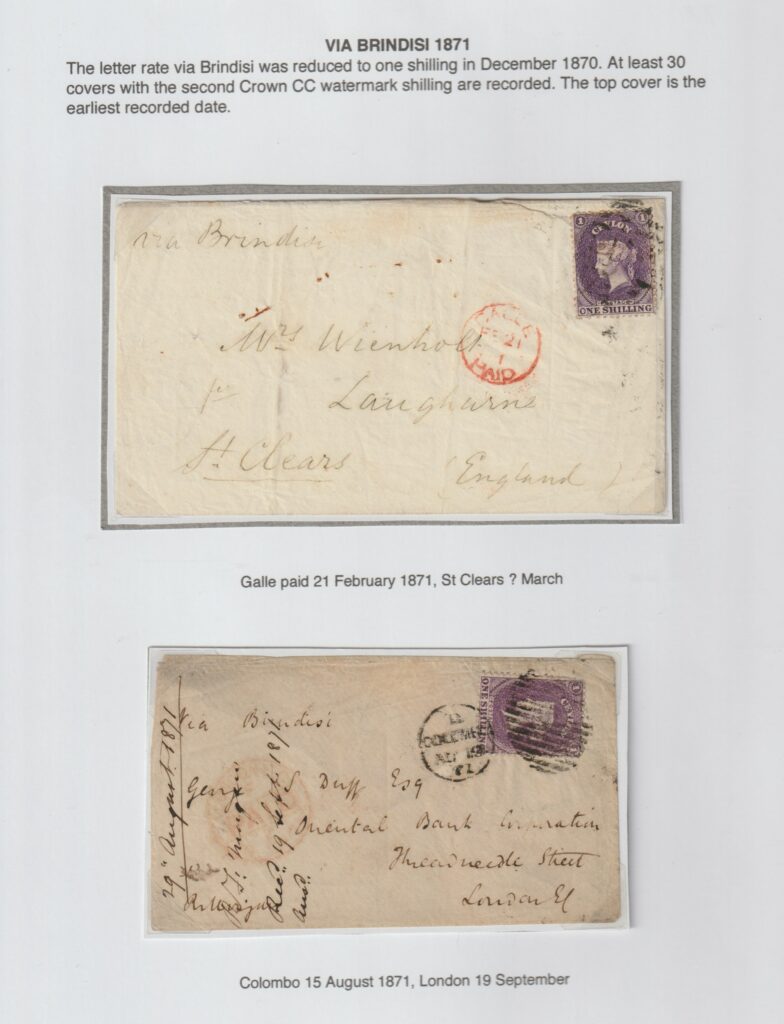 VIA BRINDISI 1871
The letter rate via Brindisi was reduced to one shilling in December 1870. At least 30
covers with the second Crown CC watermark shilling are recorded. The top cover is the
earliest recorded date.
via Brindisi
1 1
CEYLON
POSTAGE
ONE SHILLING
GALLE
FE 21
1
PAID
Mrs Wienholt
Laugharne
St. Clears
(England)
Galle paid 21 February 1871, St Clears ? March
Via Brindisi
ONE SHILLING
CEYLON
1
COLOMBO
George Duff Esq
Oriental Bank Corporation
Threadneedle Street
London EC
29" August 1871
Recd. 19 Sept. 1871
Ansd.
Colombo 15 August 1871, London 19 September